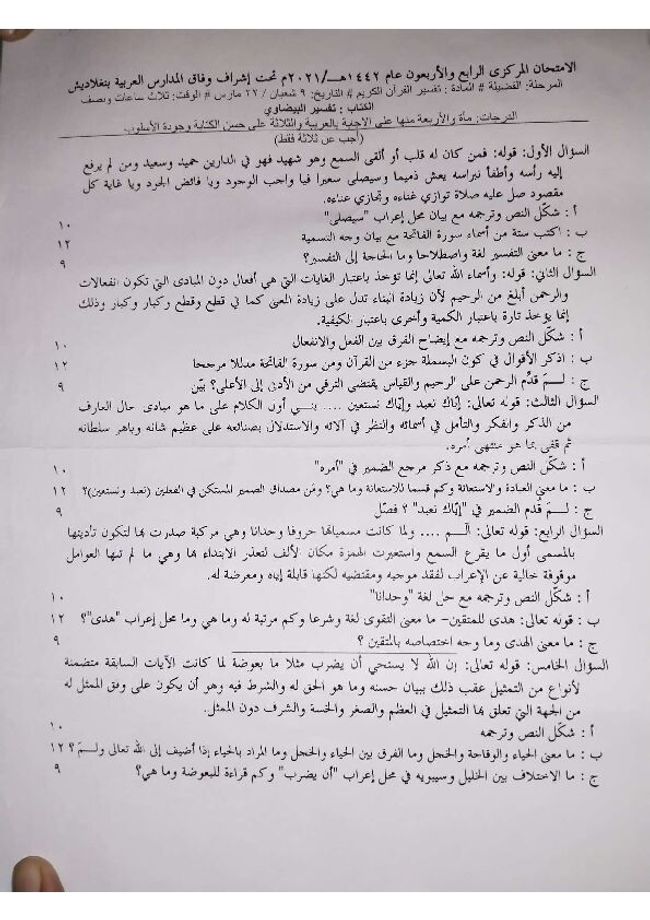 الامتحان المركزى الرابع والأربعون عام ١٤٤٢هـ/٢٠٢١م تحت إشراف وفاق المدارس العربية بنغلاديش
المرحلة: الفضيلة # المادة: تفسير القرآن الكريم # التاريخ: ٩ شعبان / ٢٢ مارس # الوقت: ثلاث ساعات ونصف
الكتاب: تفسير البيضاوي
الدرجات: مأة والأربعة منها على الإجابة بالعربية والثلاثة على حسن الكتابة وجودة الأسلوب
(أجب عن ثلاثة فقط)
السؤال الأول: قوله: فمن كان له قلب أو ألقى السمع وهو شهيد فهو في الدارين حميد وسعيد ومن لم يرفع
إليه رأسه وأطفأ نبراسه يعش ذميما وسيصلى سعيرا فيا واجب الوجود ويا فائض الجود ويا غاية كل
مقصود صل عليه صلاة توازي غناءه وتجازي عناءه.
أ : شكّل النص وترجمه مع بيان محل إعراب "سيصلى" ١٠
ب : اكتب ستة من أسماء سورة الفاتحة مع بيان وجه التسمية ١٢
ج : ما معنى التفسير لغة واصطلاحا وما الحاجة إلى التفسير؟ ٩
السؤال الثاني: قوله: وأسماء الله تعالى إنما تؤخذ باعتبار الغايات التي هي أفعال دون المبادى التي تكون انفعالات
والرحمن أبلغ من الرحيم لأن زيادة البناء تدل على زيادة المعنى كما في قطع وقطع وكبار وكبار وذلك
إنما يؤخذ تارة باعتبار الكمية وأخرى باعتبار الكيفية.
أ : شكّل النص وترجمه مع إيضاح الفرق بين الفعل والانفعال ١٠
ب : اذكر الأقوال في كون البسملة جزء من القرآن ومن سورة الفاتحة مدللا مرجحا ١٢
ج : لـمَ قدّم الرحمن على الرحيم والقياس يقتضى الترقي من الأدنى إلى الأعلى؟ بيّن ٩
السؤال الثالث: قوله تعالى: إيّاك نعبد وإيّاك نستعين .... بنـي أول الكلام على ما هو مبادى حال العارف
من الذكر والفكر والتأمل في أسمائه والنظر في آلائه والاستدلال بصنائعه على عظيم شانه وباهر سلطانه
ثم قفى بما هو منتهى أمره.
أ : شكّل النص وترجمه مع ذكر مرجع الضمير في "أمره" ١٠
ب : ما معنى العبادة والاستعانة وكم قسما للاستعانة وما هي؟ ومَن مصداق الضمير المستكن في الفعلين (نعبد ونستعين)؟ ١٢
ج : لـمَ قُدم الضمير في "إيّاك نعبد" ؟ فصّل ٩
السؤال الرابع: قوله تعالى: الٓـمٓ .... ولما كانت مسمياتها حروفا وحدانا وهي مركبة صدرت بها لتكون تأديتها
بالمسمى أول ما يقرع السمع واستعيرت الهمزة مكان الألف لتعذر الابتداء بها وهي ما لم تلها العوامل
موقوفة خالية عن الإعراب لفقد موجبه ومقتضيه لكنها قابلة إياه ومعرضة له.
أ : شكّل النص وترجمه مع حل لغة "وحدانا" ١٠
ب : قوله تعالى: هدى للمتقين- ما معنى التقوى لغة وشرعا وكم مرتبة له وما هي وما محل إعراب "هدى"؟ ١٢
ج : ما معنى الهدى وما وجه اختصاصه بالمتقين ؟ ٩
السؤال الخامس: قوله تعالى: إن الله لا يستحي أن يضرب مثلا ما بعوضة لما كانت الآيات السابقة متضمنة
لأنواع من التمثيل عقب ذلك ببيان حسنه وما هو الحق له والشرط فيه وهو أن يكون على وفق الممثل له
من الجهة التي تعلق بها التمثيل في العظم والصغر والخسة والشرف دون الممثل.
أ : شكّل النص وترجمه ١٠
ب : ما معنى الحياء والوقاحة والخجل وما الفرق بين الحياء والخجل وما المراد بالحياء إذا أضيف إلى الله تعالى ولـمَ ؟ ١٢
ج : ما الاختلاف بين الخليل وسيبويه في محل إعراب "أن يضرب" وكم قراءة للبعوضة وما هي؟ ٩